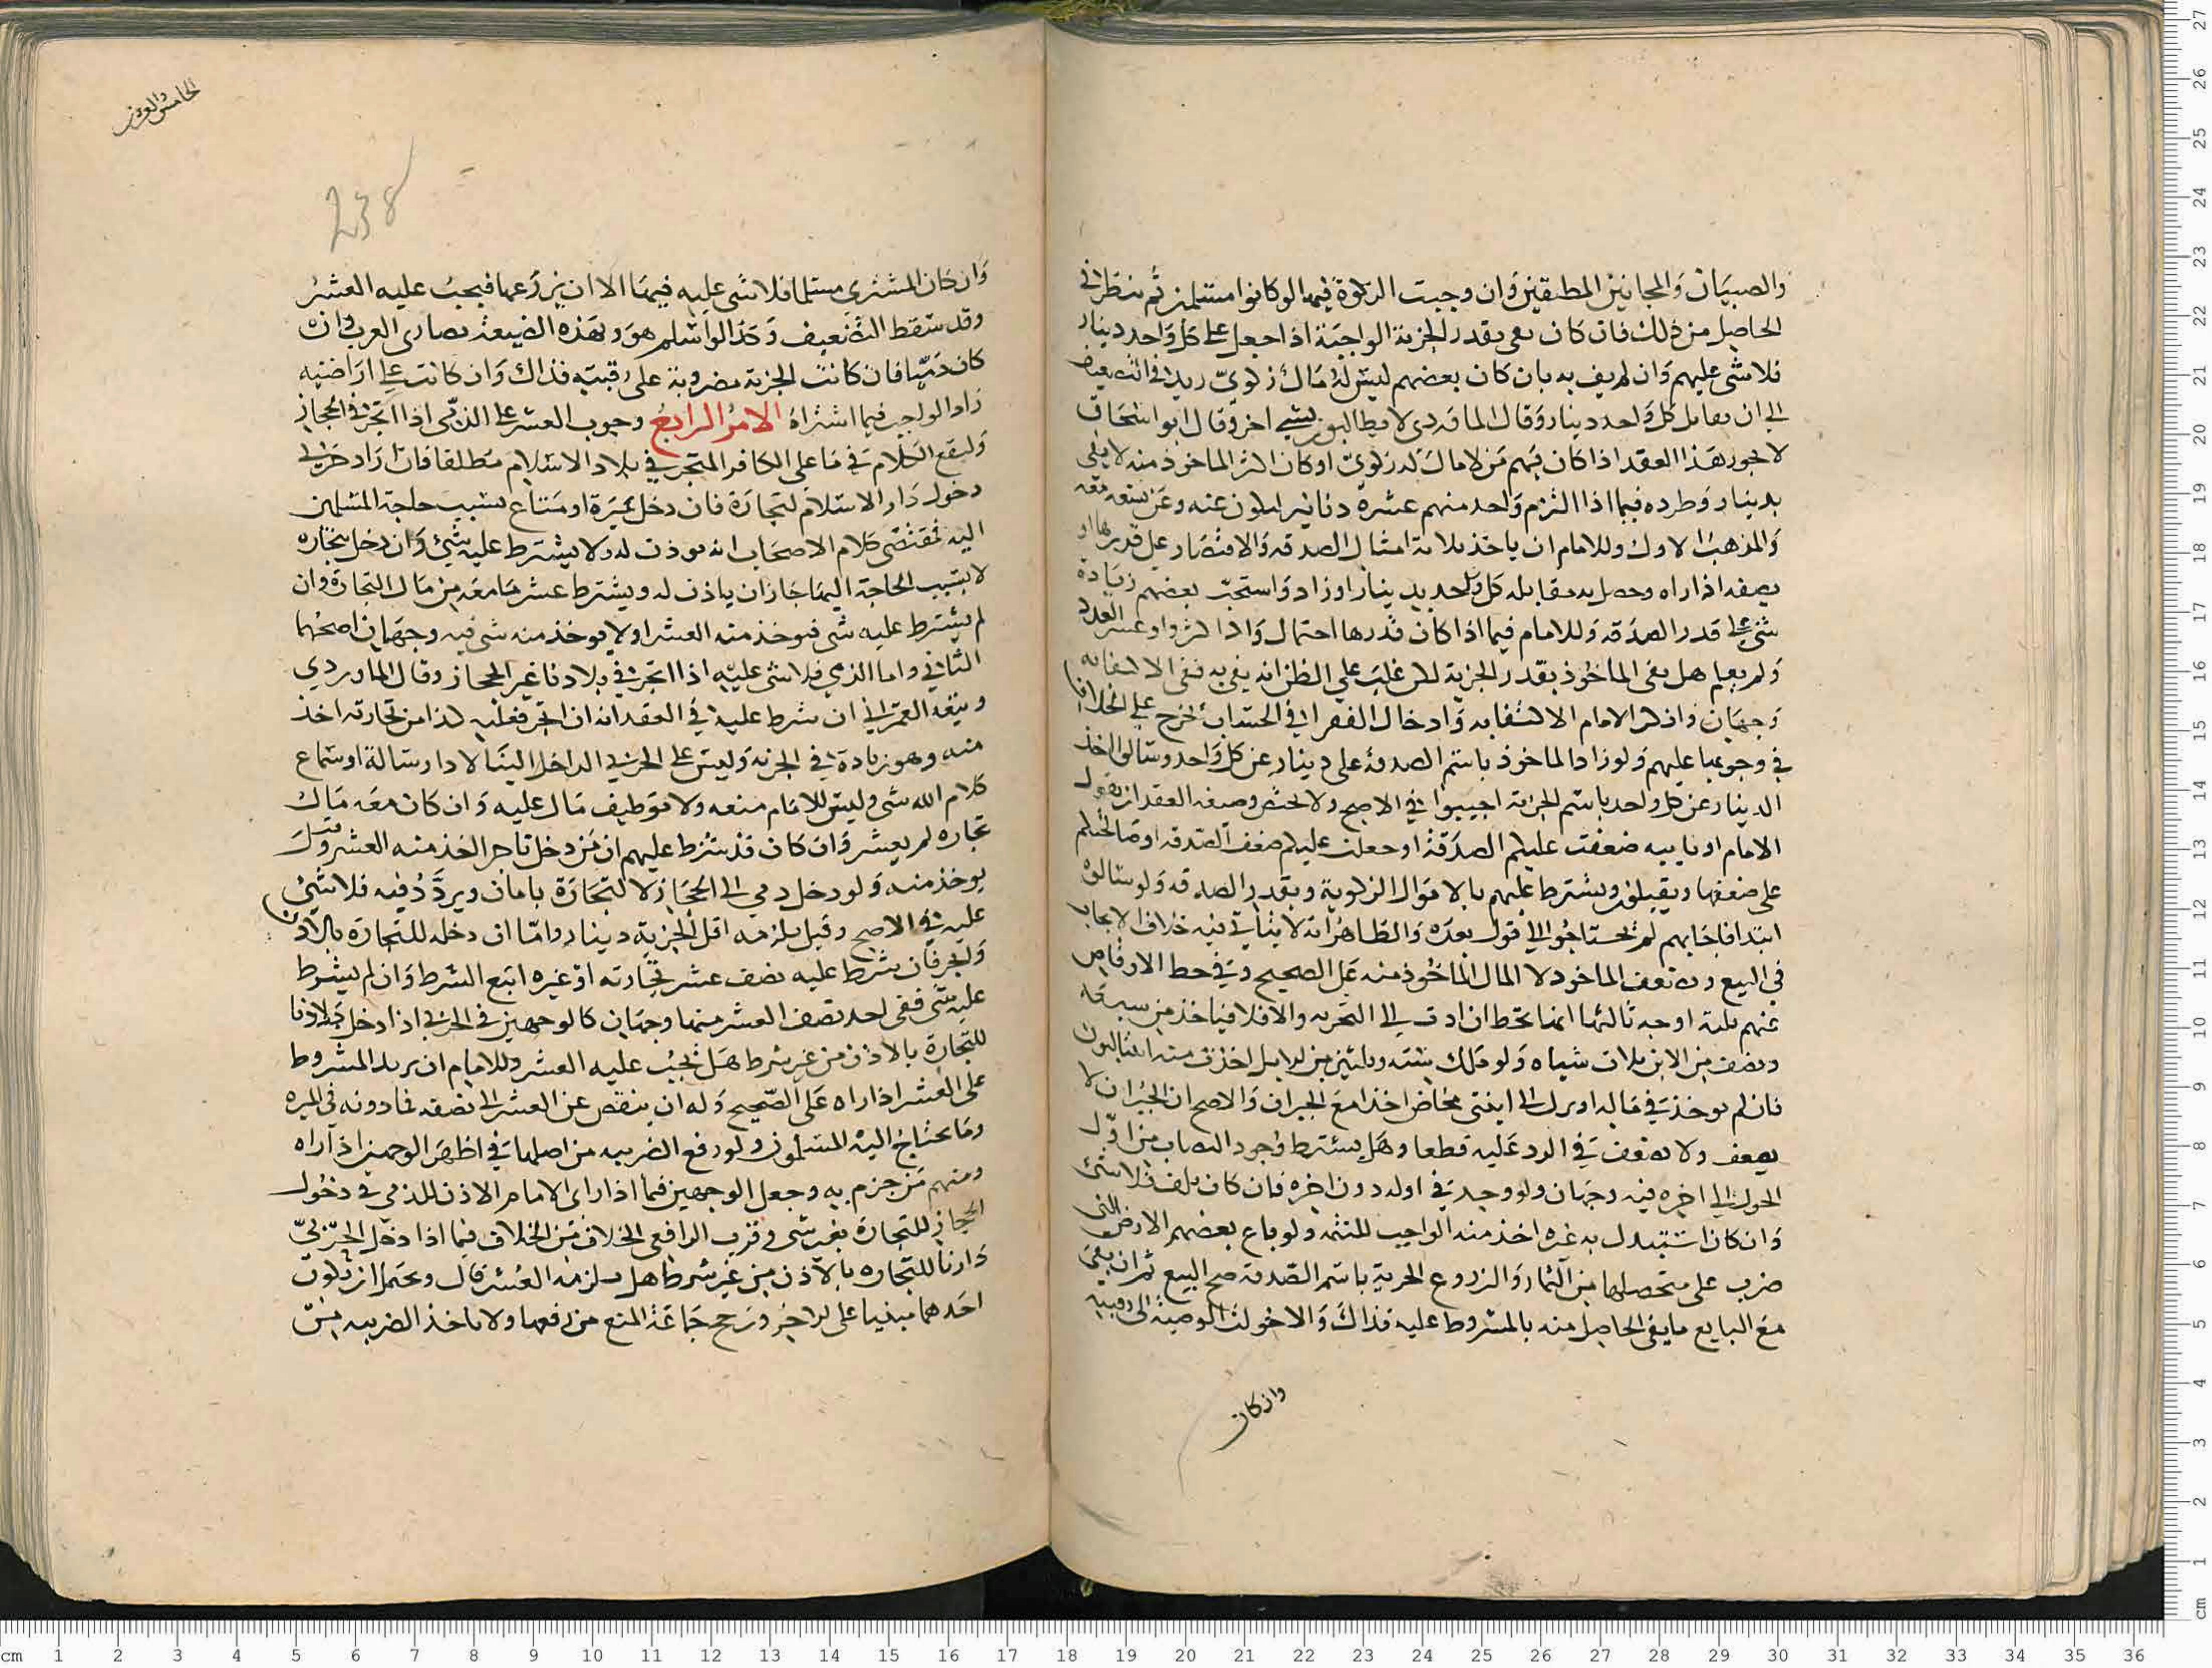 والصبيان والمجانين المطبقين وان وجبت الزكوة فيها لو كانوا مسلمين ثم ينظر في
الحاصل من ذلك فان كان يفي بقدر الجزية الواجبة اذا جعل على كل واحد دينار
فلا شي عليهم وان لم يف به بان كان بعضهم ليس له مال زكوي زيد في التضعيف
الى ان يقابل كل واحد دينار وقال الماوردي لا يطالبون بشي اخر وقال ابو اسحاق
لا يجوز هذا العقد اذا كان فيهم من لا مال له زكوي او كان الماخوذ منه لا يفي
بدينار وطرده فيما اذا التزم واحد منهم عشرة دنانير عنه وعن تسعة معه
والمذهب الاول وللامام ان ياخذ ثلاثة امثال الصدقة والاقتصار على قدرها او
نصفه اذا راه وحصل به مقابله كل واحد بدينار او زاد واستحب بعضهم زيادة
شي على قدر الصدقة وللامام فيما اذا كان قدرها احتمال واذا كثروا وعسر العدد
ولم يعلم هل يفي الماخوذ بقدر الجزية لكن غلب على الظن انه يفي به ففي الاكتفا به
وجهان وانكر الامام الاكتفا به وادخال الفقرا في الحساب يخرج على الخلاف
في وجوبها عليهم ولو زاد الماخوذ باسم الصدقة على دينار عن كل واحد وسالوا اخذ
الدينار عن كل واحد باسم الجزية اجيبوا في الاصح ولا وصيغة العقد ان يقول
الامام او نايبه ضعفت عليكم الصدقة او جعلت عليكم ضعف الصدقة او صالحتكم
على ضعفها ويقبلون ويشترط علمهم بالاموال الزكوية وبقدر الصدقة ولو سالوه
ابتدا فاجابهم لم يحتاجوا الى قول بعده والظاهر انه لا ياتي فيه خلاف الايجاب
في البيع و يضعف الماخوذ لا المال الماخوذ منه على الصحيح وفي حط الاوقاص
عنهم ثلثة اوجه ثالثها انها تحط ان ادت الى التجزيه والا فلا فياخذ من سبعة
ونصف من الابل ثلاث شياه ولو ملك ستة وثلثين من الابل اخذت منه ابنتا لبون
فان لم يوخذ في ماله او نزل الى ابنتي مخاض اخذ مع الجبران والاصح ان الجبران لا
يضعف ولا يضعف في الرد عليه قطعا وهل يشترط وجود النصاب من اول
الحول الى اخره فيه وجهان ولو وجد في اوله دون اخره فان كان بتلف فلا شي
وان كان استبدل به غيره اخذ منه الواجب للتهمة ولو باع بعضهم الارض التي
ضرب على متحصلها من الثمار والزروع الجزية باسم الصدقة صح البيع ثم ان بقي
مع البايع ما يفي الحاصل منه بالمشروط عليه فذاك والا حولت الوصية الى رقبته
وان كان
الخامس والعشر
238
وان كان المشتري مسلما فلا شي عليه فيها الا ان يزرعها فيجب عليه العشر
وقد سقط التضعيف وكذا لو اسلم هو وبهذه الصيغة نصارى العرب وان
كان ذميا فان كانت الجزية مضروبة على رقبته فذاك وان كانت على اراضيه
زاد الواجب فيما اشتراه الامر الرابع وجوب العشر على الذمي اذا اتجر في الحجاز
وليقع الكلام في ما على الكافر المتجر في بلاد الاسلام مطلقا فان اراد حربي
دخول دار الاسلام لتجارة فان دخل بميرة او متاع بسبب حاجة المسلمين
اليه فمقتضى كلام الاصحاب انه يوذن له ولا يشترط عليه شي وان دخل بتجاره
لا بسبب الحاجة اليها جاز ان ياذن له ويشترط عشر ما معه من مال التجارة وان
لم يشترط عليه شي فيوخذ منه العشر او لا يوخذ منه شي فيه وجهان اصحهما
الثاني واما الذمي فلا شي عليه اذا اتجر في بلادنا غير الحجاز وقال الماوردي
وتبعه العمراني ان شرط عليه في العقد انه ان اتجر فعليه كذا من تجارته اخذ
منه وهو زيادة في الجزية وليس على الحربي الداخل الينا لادا رسالة او سماع
كلام الله شي وليس للامام منعه ولا توظيف مال عليه وان كان معه مال
تجاره لم يعشر وان كان قد شرط عليهم ان من دخل تاجرا اخذ منه العشر وقيل
يوخذ منه ولو دخل ذمي الى الحجاز لا لتجارة بامان ويردد فيه فلا شي
عليه في الاصح وقيل يلزمه اقل الجزية دينار واما ان دخله للتجارة بالاذن
واتجر فان شرط عليه نصف عشر تجارته او غيره اتبع الشرط وان لم يشرط
عليه شي ففي اخذ نصف العشر منها وجهان كالوجهين في الحربي اذا دخل بلادنا
للتجارة بالاذن من غير شرط هل يجب عليه العشر وللامام ان يزيد المشروط
على العشر اذا راه على الصحيح وله ان ينقص عن العشر الى نصفه فما دونه في الميره
وما يحتاج اليه المسلمون ولو رفع الضريبه من اصلها في اظهر الوجهين اذا راه
ومنهم من جزم به وجعل الوجهين فيما اذا راى الامام الاذن للذمي في دخول
الحجاز للتجارة بغير شي وقرب الرافعي الخلاف من الخلاف فيما اذا دخل الحربي
دارنا للتجاره بالاذن من غير شرط هل يلزمه العشر قال ويحتمل ان يكون
احدهما مبنيا على الاخر ورجح جماعة المنع من رفعها ولا ياخذ الضريبه من